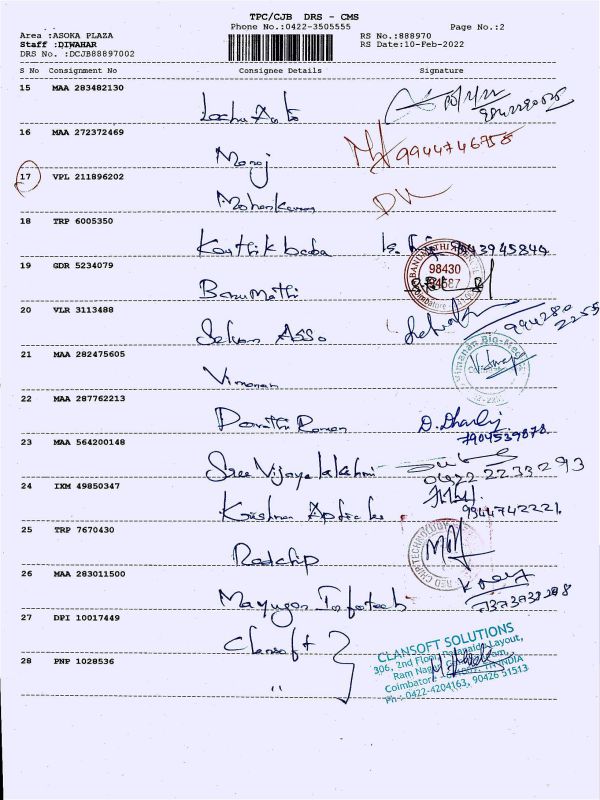 TPC/CJB DRS - CMS
Phone No.:0422-3505555
Page No.:2
Area :ASOKA PLAZA
RS No.:888970
Staff :DIWAHAR
RS Date:10-Feb-2022
DRS No. :DCJB88897002
S No Consignment No Consignee Details Signature
15 MAA 283482130
16 MAA 272372469
Manoj 9944746758
17 VPL 211896202
Mohankumar
18 TRP 6005350
Karthik baba
19 GDR 5234079
98430
Banumathi
20 VLR 3113488
Selvan Asso
21 MAA 282475605
Vimanan
22 MAA 287762213
D. Dharlij
7904539878
23 MAA 564200148
Sree Vijaya lakshmi
0422 2233293
24 IXM 49850347
Krishna
9944742221
25 TRP 7670430
Redchip
26 MAA 283011500
Mayugan Infotech
27 DPI 10017449
Clansoft
CLANSOFT SOLUTIONS
306, 2nd Floor, Layout,
28 PNP 1028536
Ram Nagar
"
Coimbatore INDIA
Ph : 0422-4204163, 90426 31513